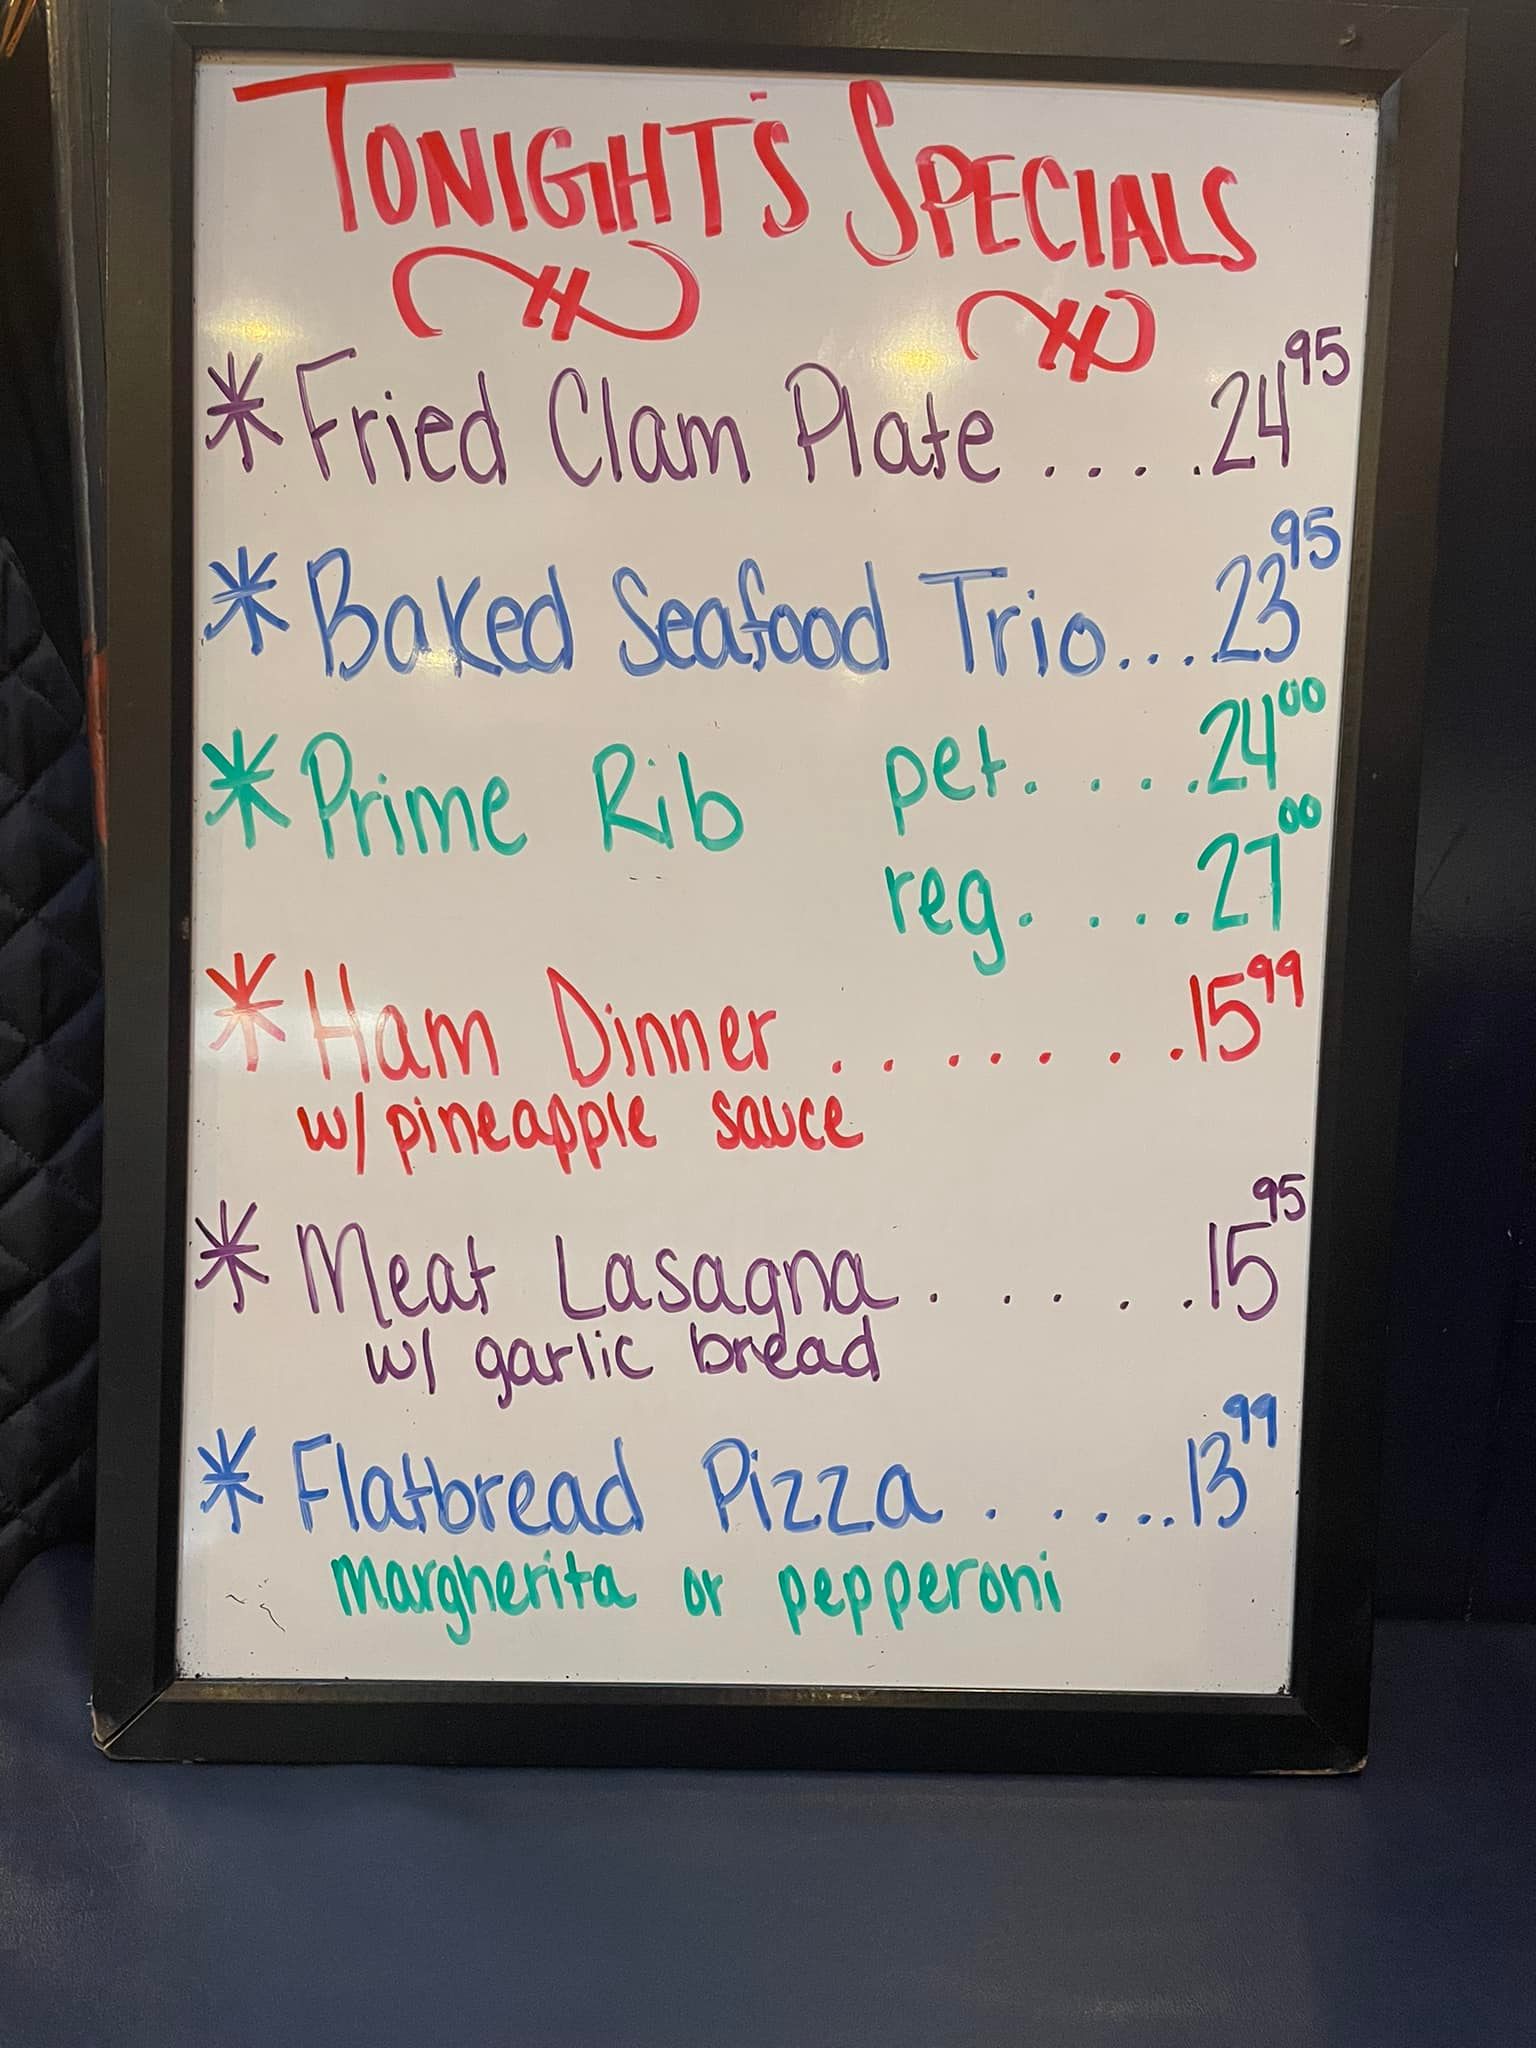 TONIGHT'S SPECIALS
* Fried Clam Plate .... 24 95
* Baked Seafood Trio... 23 95
* Prime Rib pet..... 24 00
reg..... 27 00
* Ham Dinner ........ 15 99
w/ pineapple sauce
* Meat Lasagna...... 15 95
w/ garlic bread
* Flatbread Pizza ...... 13 99
margherita or pepperoni